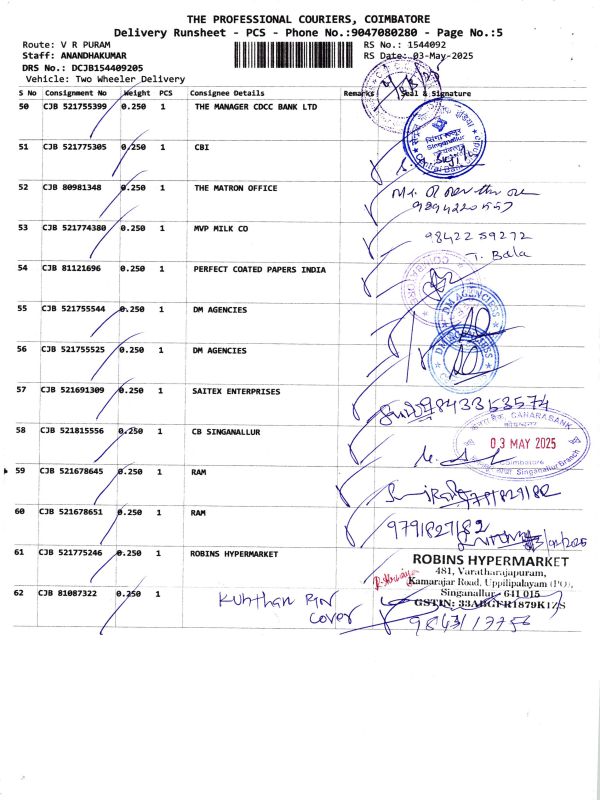 THE PROFESSIONAL COURIERS, COIMBATORE
Delivery Runsheet - PCS - Phone No.:9047080280 - Page No.:5
Route: V R PURAM RS No.: 1544092
Staff: ANANDHAKUMAR RS Date: 03-May-2025
DRS No.: DCJB154409205
Vehicle: Two Wheeler Delivery
S No Consignment No Weight PCS Consignee Details Remarks Seal & Signature
50 CJB 521755399 0.250 1 THE MANAGER CDCC BANK LTD
51 CJB 521775305 0.250 1 CBI
Singanallur
52 CJB 80981348 0.250 1 THE MATRON OFFICE
53 CJB 521774380 0.250 1 MVP MILK CO
9842259272
T. Bala
54 CJB 81121696 0.250 1 PERFECT COATED PAPERS INDIA
DM AGENCIESS
55 CJB 521755544 0.250 1 DM AGENCIES
56 CJB 521755525 0.250 1 DM AGENCIES
57 CJB 521691309 0.250 1 SAITEX ENTERPRISES
9843353574
58 CJB 521815556 0.250 1 CB SINGANALLUR
CANARA BANK
03 MAY 2025
Coimbatore
Singanallur Branch
59 CJB 521678645 0.250 1 RAM
60 CJB 521678651 0.250 1 RAM
9791827182
61 CJB 521775246 0.250 1 ROBINS HYPERMARKET
ROBINS HYPERMARKET
481, Varatharajapuram,
Kamarajar Road, Uppilipalayam (PO),
Singanallur - 641 015
GSTIN: 33ABGFR1879K1ZS
62 CJB 81087322 0.250 1
cover